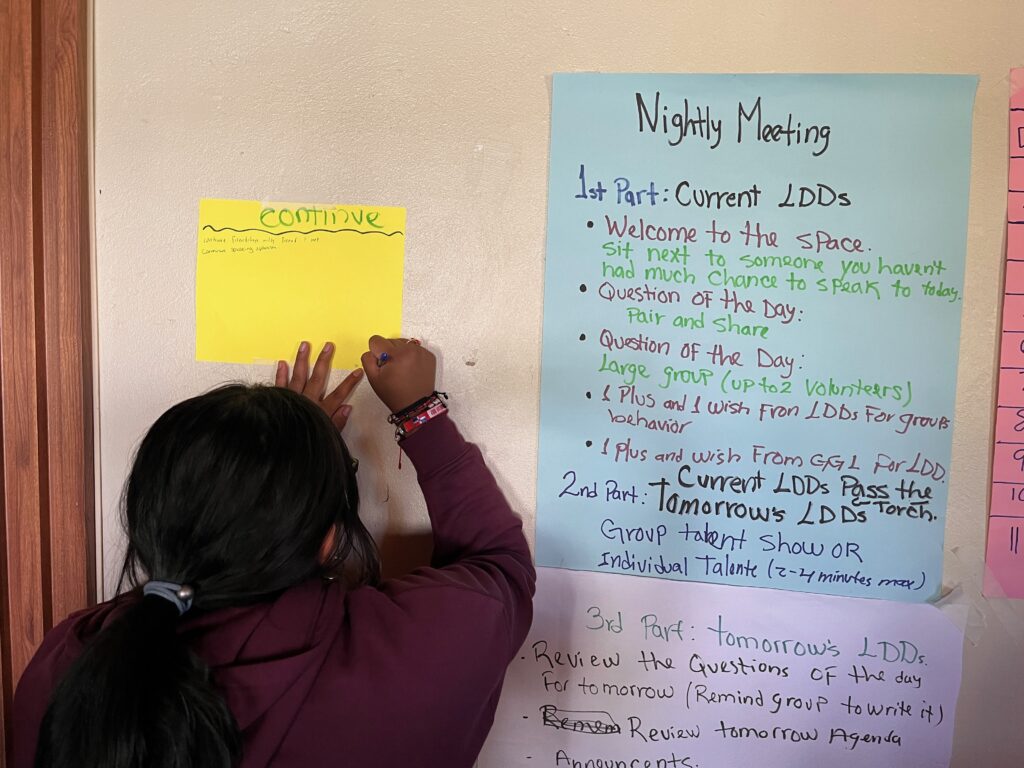 continue
Continue speaking spanish
Nightly Meeting
1st Part: Current LDDs
• Welcome to the space.
Sit next to someone you haven't
had much chance to speak to today.
• Question of the Day:
Pair and Share
• Question of the Day:
Large group (up to 2 Volunteers)
• 1 Plus and 1 wish From LDDs For groups
behavior
• 1 Plus and wish From GGL For LDD.
2nd Part: Current LDDs Pass the
Torch.
Tomorrow's LDDs
Group talent Show OR
Individual Talente (2-4 minutes max)
3rd Part: tomorrow's LDDs.
- Review the Questions of the day
For tomorrow (Remind group to write it)
- Review tomorrow Agenda
- Announcents.
8
9
10
11